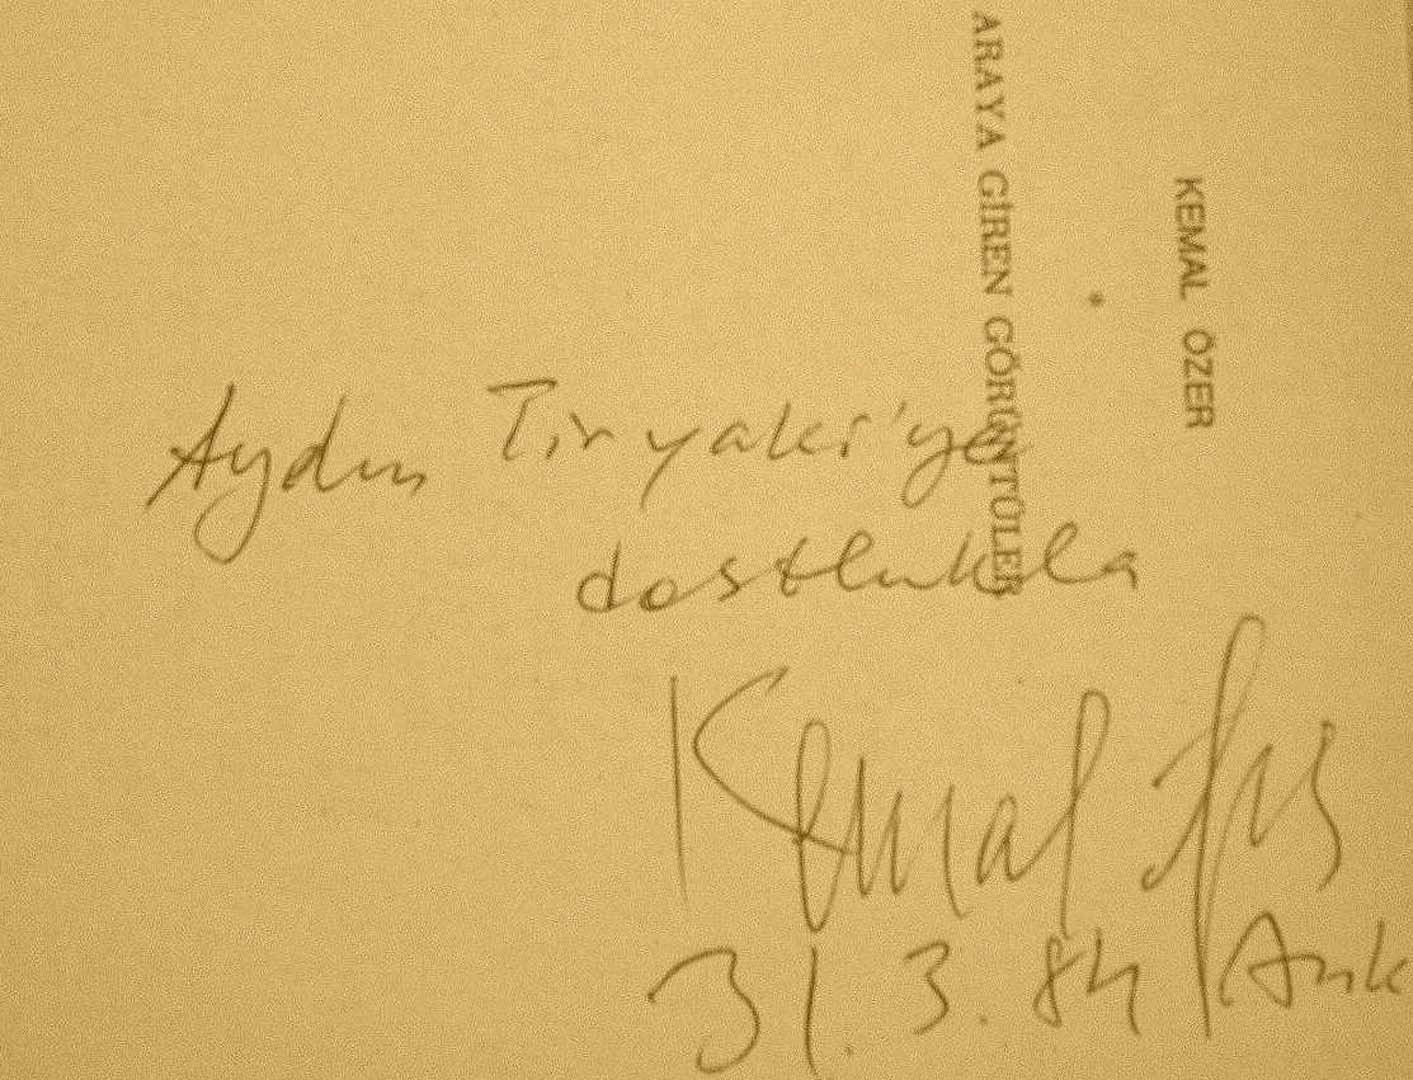 KEMAL ÖZER
ARAYA GİREN GÖRÜNTÜLER
Aydın Tiryaki'ye
dostlukla
Kemal
31.3.84 Ank